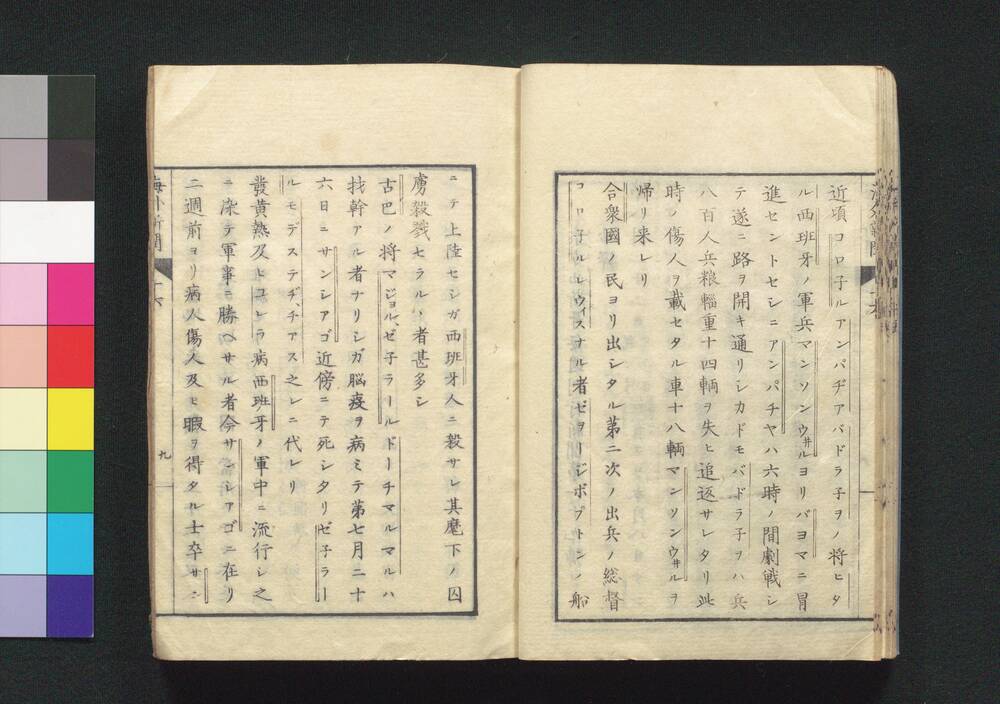 近頃コロ子ルアンパヂアバドラ子ヲノ将ヒタ
ル西班牙ノ軍兵マンソンウ井ルヨリバヨマニ冒
進セントセシニアンパチヤハ六時ノ間劇戦シ
テ遂ニ路ヲ開キ通リシカドモバドラ子ヲハ兵
八百人兵粮輜重十四輌ヲ失ヒ追返サレタリ此
時ノ傷人ヲ載セタル車十八輌マンソンウ井ルヲ
帰リ来レリ
合衆國ノ民ヨリ出シタル第二次ノ出兵ノ総督
コロ子ルレウィスナル者ゼヲージボプトンノ船
ニテ上陸センガ西班牙人ニ殺サレ其麾下ノ囚
虜殺戮セラルヽ者甚多シ
古巴ノ将マジョルゼ子ラールドーチマルマルハ
才幹アル者ナリシガ脳疫ヲ病ミテ第七月二十
六日ニサンシアゴ近傍ニテ死シタリゼ子ラー
ルモデステヂ、チアス之レニ代レリ
發黄熱及ヒコレラ病西班牙ノ軍中ニ流行シ之
ニ染テ軍事ニ勝ヘサル者今サンシアゴニ在リ
二週前ヨリ病人傷人及ヒ暇ヲ得タル士卒サニ
海外新聞
九